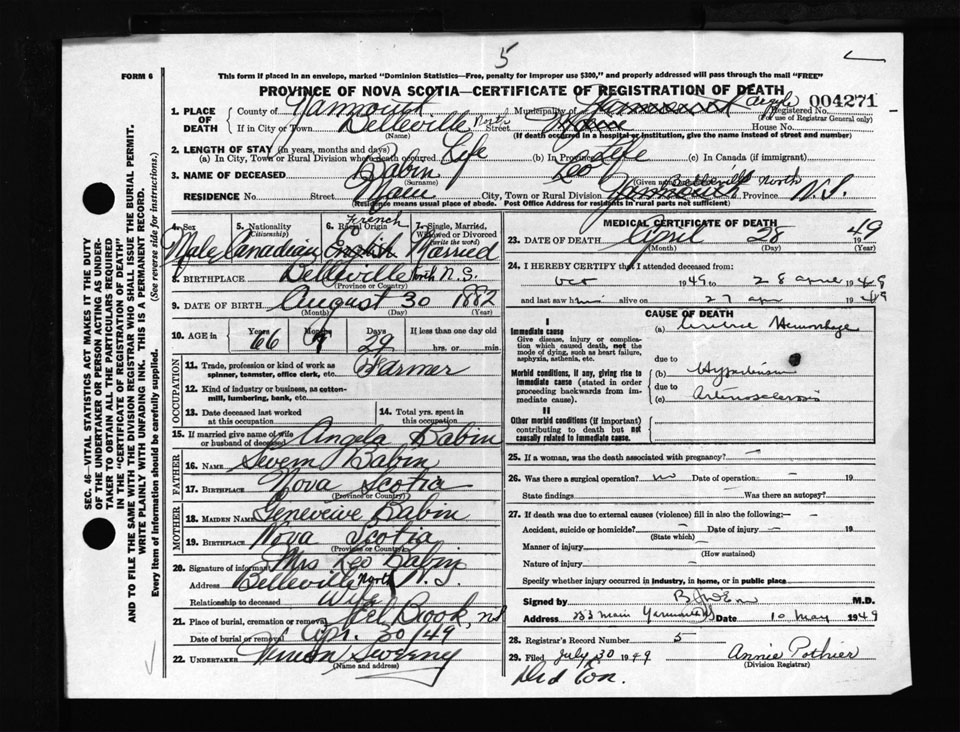 5
FORM 6
This form if placed in an envelope, marked "Dominion Statistics—Free, penalty for improper use $300," and properly addressed will pass through the mail "FREE"
PROVINCE OF NOVA SCOTIA—CERTIFICATE OF REGISTRATION OF DEATH
1. PLACE OF DEATH County of Yarmouth Municipality of Yarmouth Argyle Registered No. 004271
(For use of Registrar General only)
If in City or Town Belleville North Street Home House No.
(Name) (If death occurred in a hospital or institution, give the name instead of street and number)
2. LENGTH OF STAY (in years, months and days)
(a) In City, Town or Rural Division where death occurred Life (b) In Province Life (c) In Canada (if immigrant)
3. NAME OF DECEASED Babin Leo
(Surname) (Given names)
RESIDENCE No. Street Main City, Town or Rural Division Yarmouth Belleville North Province N.S.
(Residence means usual place of abode. Post Office Address for residents in rural parts not sufficient)
4. Sex Male
5. Nationality (Citizenship) Canadian
6. Racial Origin French English
7. Single, Married, Widowed or Divorced (write the word) Married
8. BIRTHPLACE Belleville North N.S.
(Province or Country)
9. DATE OF BIRTH August 30 1882
(Month) (Day) (Year)
10. AGE in Years 66 Months Days 29 If less than one day old
hrs. or min.
OCCUPATION
11. Trade, profession or kind of work as spinner, teamster, office clerk, etc. Farmer
12. Kind of industry or business, as cotten-mill, lumbering, bank, etc.
13. Date deceased last worked at this occupation
14. Total yrs. spent in this occupation
15. If married give name of wife or husband of deceased Angela Babin
FATHER
16. NAME Severn Babin
17. BIRTHPLACE Nova Scotia
(Province or Country)
MOTHER
18. MAIDEN NAME Genevieve Babin
19. BIRTHPLACE Nova Scotia
(Province or Country)
20. Signature of informant Mrs Leo Babin
Address Belleville North N.S.
Relationship to deceased Wife
21. Place of burial, cremation or removal Eel Brook, ns
Date of burial or removal Apr. 30/49
22. UNDERTAKER Vernon Sweeny
(Name and address)
MEDICAL CERTIFICATE OF DEATH
23. DATE OF DEATH April 28 1949
(Month) (Day) (Year)
24. I HEREBY CERTIFY that I attended deceased from:
Oct 1945 to 28 april 1949
and last saw him alive on 27 apr 1949
CAUSE OF DEATH
I
Immediate cause
Give disease, injury or complication which caused death, not the mode of dying, such as heart failure, asphyxia, asthenia, etc.
(a) Hemorrhage
due to
Morbid conditions, if any, giving rise to immediate cause (stated in order proceeding backwards from immediate cause).
(b) Hypertension
due to
(c) Arteriosclerosis
II
Other morbid conditions (if important) contributing to death but not causally related to immediate cause.
25. If a woman, was the death associated with pregnancy? —
26. Was there a surgical operation? no Date of operation — 19
State findings Was there an autopsy? —
27. If death was due to external causes (violence) fill in also the following:—
Accident, suicide or homicide? — Date of injury — 19
(State which)
Manner of injury
(How sustained)
Nature of injury —
Specify whether injury occurred in industry, in home, or in public place
Signed by M.D.
Address 283 Main Yarmouth Date 10 May 1949
28. Registrar's Record Number 5
29. Filed July 30 1949 Annie Pothier
(Division Registrar)
SEC. 46—VITAL STATISTICS ACT MAKES IT THE DUTY
OF THE UNDERTAKER OR PERSON ACTING AS UNDER-
TAKER TO OBTAIN ALL THE PARTICULARS REQUIRED
IN THE "CERTIFICATE OF REGISTRATION OF DEATH"
AND TO FILE THE SAME WITH THE DIVISION REGISTRAR WHO SHALL ISSUE THE BURIAL PERMIT.
WRITE PLAINLY WITH UNFADING INK. THIS IS A PERMANENT RECORD.
Every item of Information should be carefully supplied. (See reverse side for instructions.)